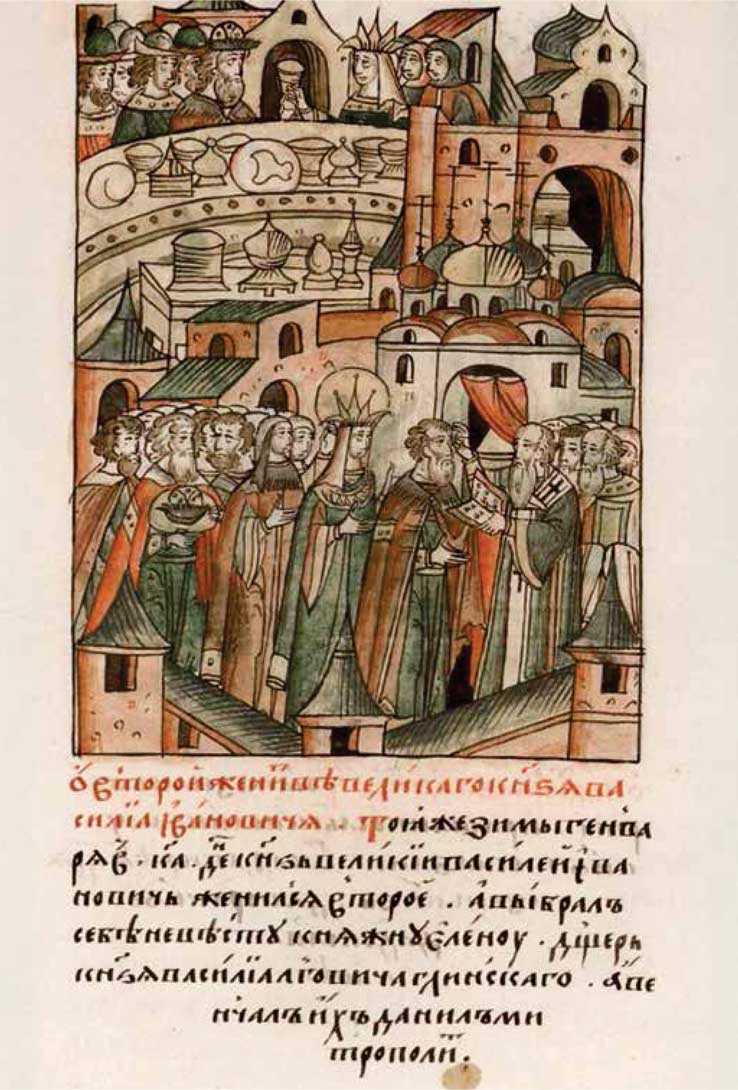 Ѡ второй женитвѣ великаго кнѧзѧ ва
силїѧ Ивановичѧ . Тоѧ же зимы генва
рѧ в҃ . ка҃ . дн҃ь кнѧзь великїи василей ива
новичь женилсѧ второе . а выбралъ
себѣ невѣсту кнѧжну Єленоу . дщерь
кнѧзѧ василїѧ лвовича глинскаго . а ве
нчалъ ихъ данилъ ми
трополит .